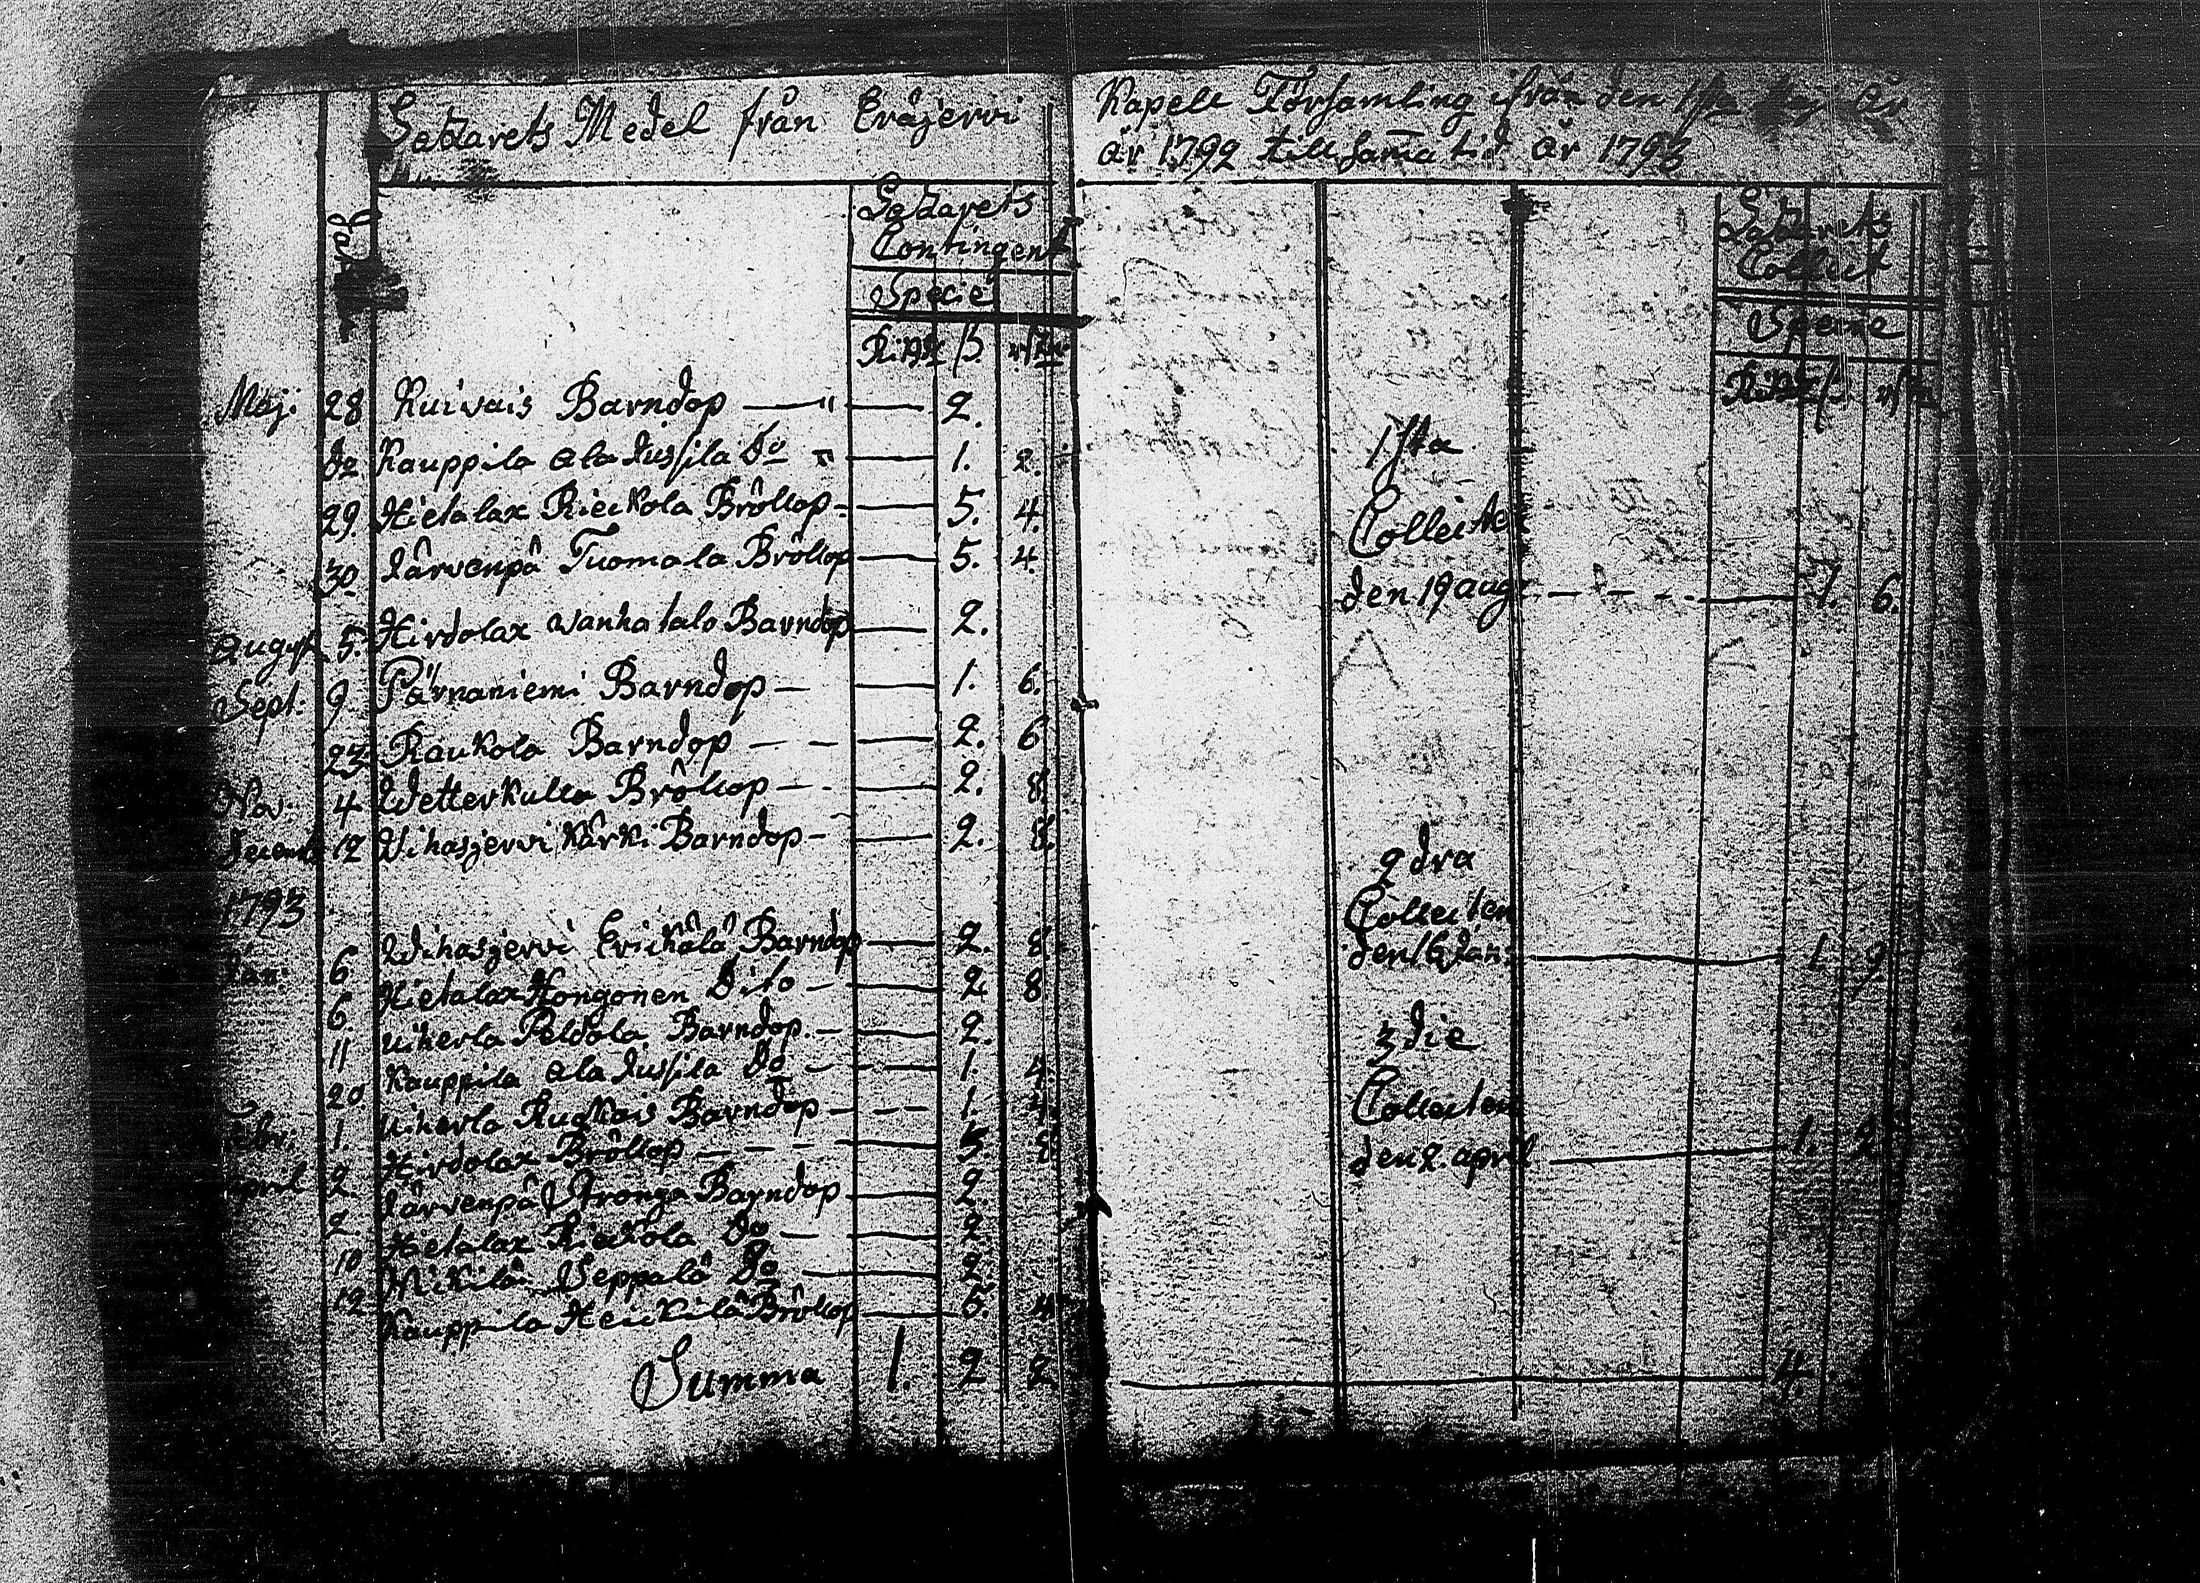 Lazarets Medel från Eräjervi
Dato
Lazarets
Contingent
Specie
Rixd ß. rst
Maj: 28 Kuivais Barndop — " — 2.
do Kauppila Ala Jussila do " — 1. 2.
29. Hietalax Rieckola Bröllop — 5. 4.
30 Järvenpä Tuomala Bröllop — 5. 4.
August 5. Hirdolax Wanhatalo Barndop — 2.
Sept: 9 Pärnaniemi Barndop — 1. 6.
23 Raukola Barndop — — 2. 6
Nov: 4 Wetterkulla Bröllop — 2. 8.
Decemb 12 Wihasjervi Kärki Barndop — 2. 8.
1793
Jan: 6 Wihasjervi Erickälä Barndop — 2. 8.
6. Hietalax Hongonen Dito — 2 8
11 Uiherla Peldola Barndop — 2.
20. Kauppila Ala Jussila do — 1. 4.
Febr: 1. Uiherla Barndop — 1. 4.
April 2. Hirdolax Bröllop — 5. 8
2. Järvenpä Stronga Barndop — 2.
10 Hietalax Rieckola do — 2
12 Mikilä Seppälä do — 2
Kauppila Heickilä Bröllop — 5. 4
Summa 1. 2 2.
Kapell Församling ifrån den 1sta Maj År
år 1792 till sama tid år 1793
Lazarets
Collect
Specie
Rixd ß rst
1sta
Collecten
den 19 aug — — — 1. 6.
2dra
Collecten
den 6 Jan: — 1. 9
3die
Collecten
den 2. april — 1. 2
4.